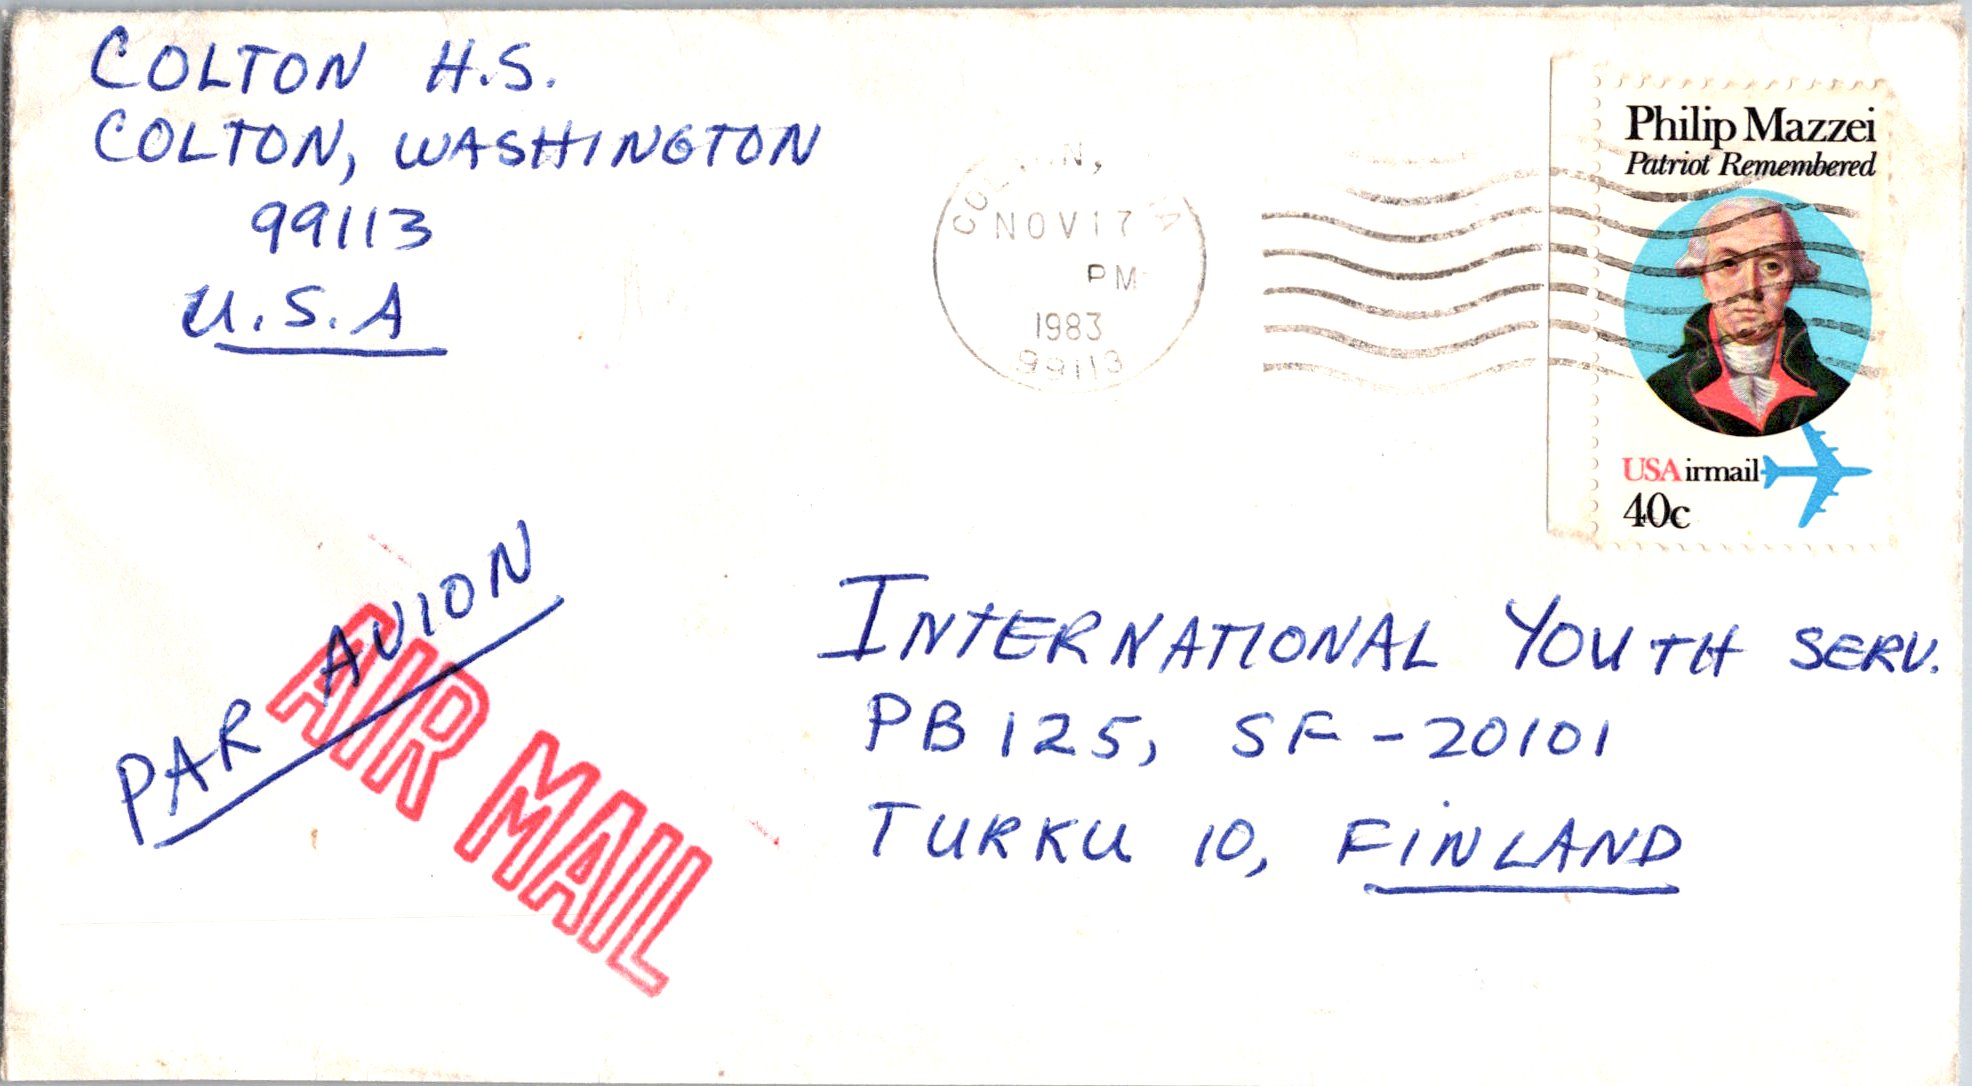 COLTON H.S.
COLTON, WASHINGTON
99113
U.S.A
NOV 17
PM
1983
99113
Philip Mazzei
Patriot Remembered
USAirmail
40c
PAR AVION
AIR MAIL
INTERNATIONAL YOUTH SERV.
PB 125, SF-20101
TURKU 10, FINLAND